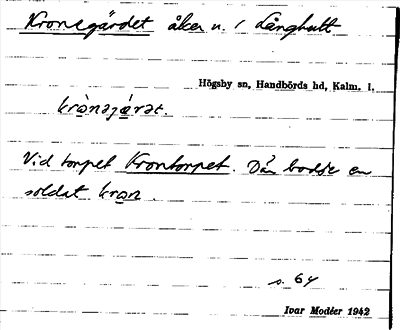 Kronegärdet åker u. / Långhult
Högsby sn, Handbörds hd, Kalm. l.
krònəjǽrət.
Vid torpet Krontorpet. Där bodde en
soldat kron.
s. 64
Ivar Modéer 1942